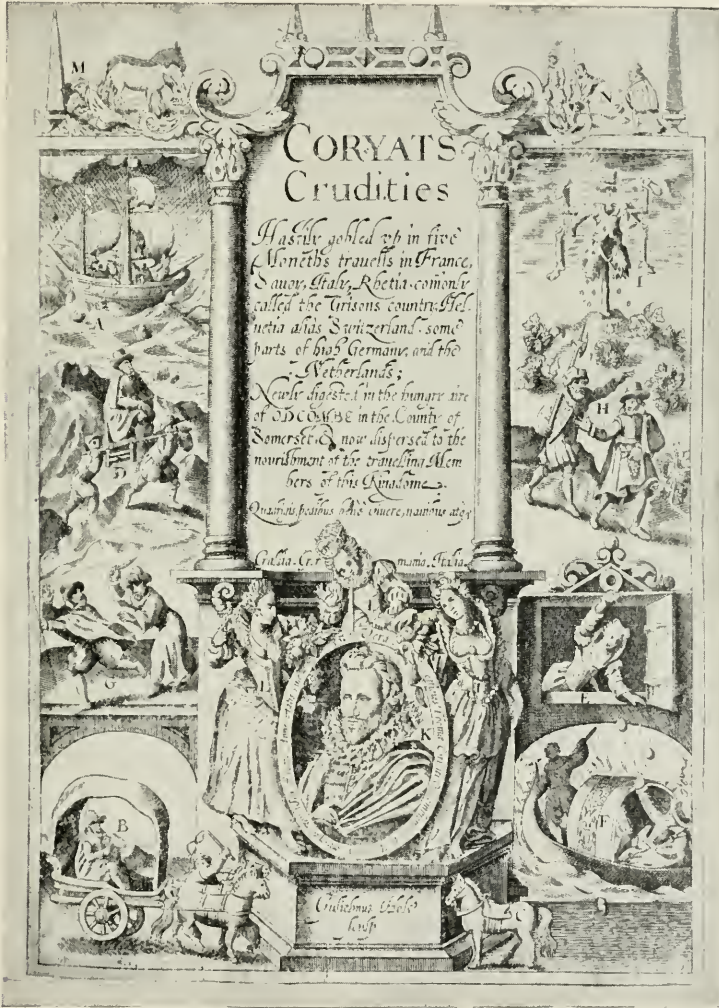 CORYATS
Crudities
Hastily gobled vp in five
Moneths travells in France,
Savoy, Italy, Rhetia comonly
called the Grisons country, Hel-
uetia aliàs Switzerland, some
parts of high Germany, and the
Netherlands;
Newly digested in the hungry aire
of ODCOMBE in the County of
Somerset, & now dispersed to the
nourishment of the travelling Mem
bers of this Kingdome.
Quadrigis, pedibus bene vivere, navibus atq;
Gallia. Ger mania. Italia.
M
N
A
I
D
H
G
E
L
K
B
F
Gulielmus Hole
sculp